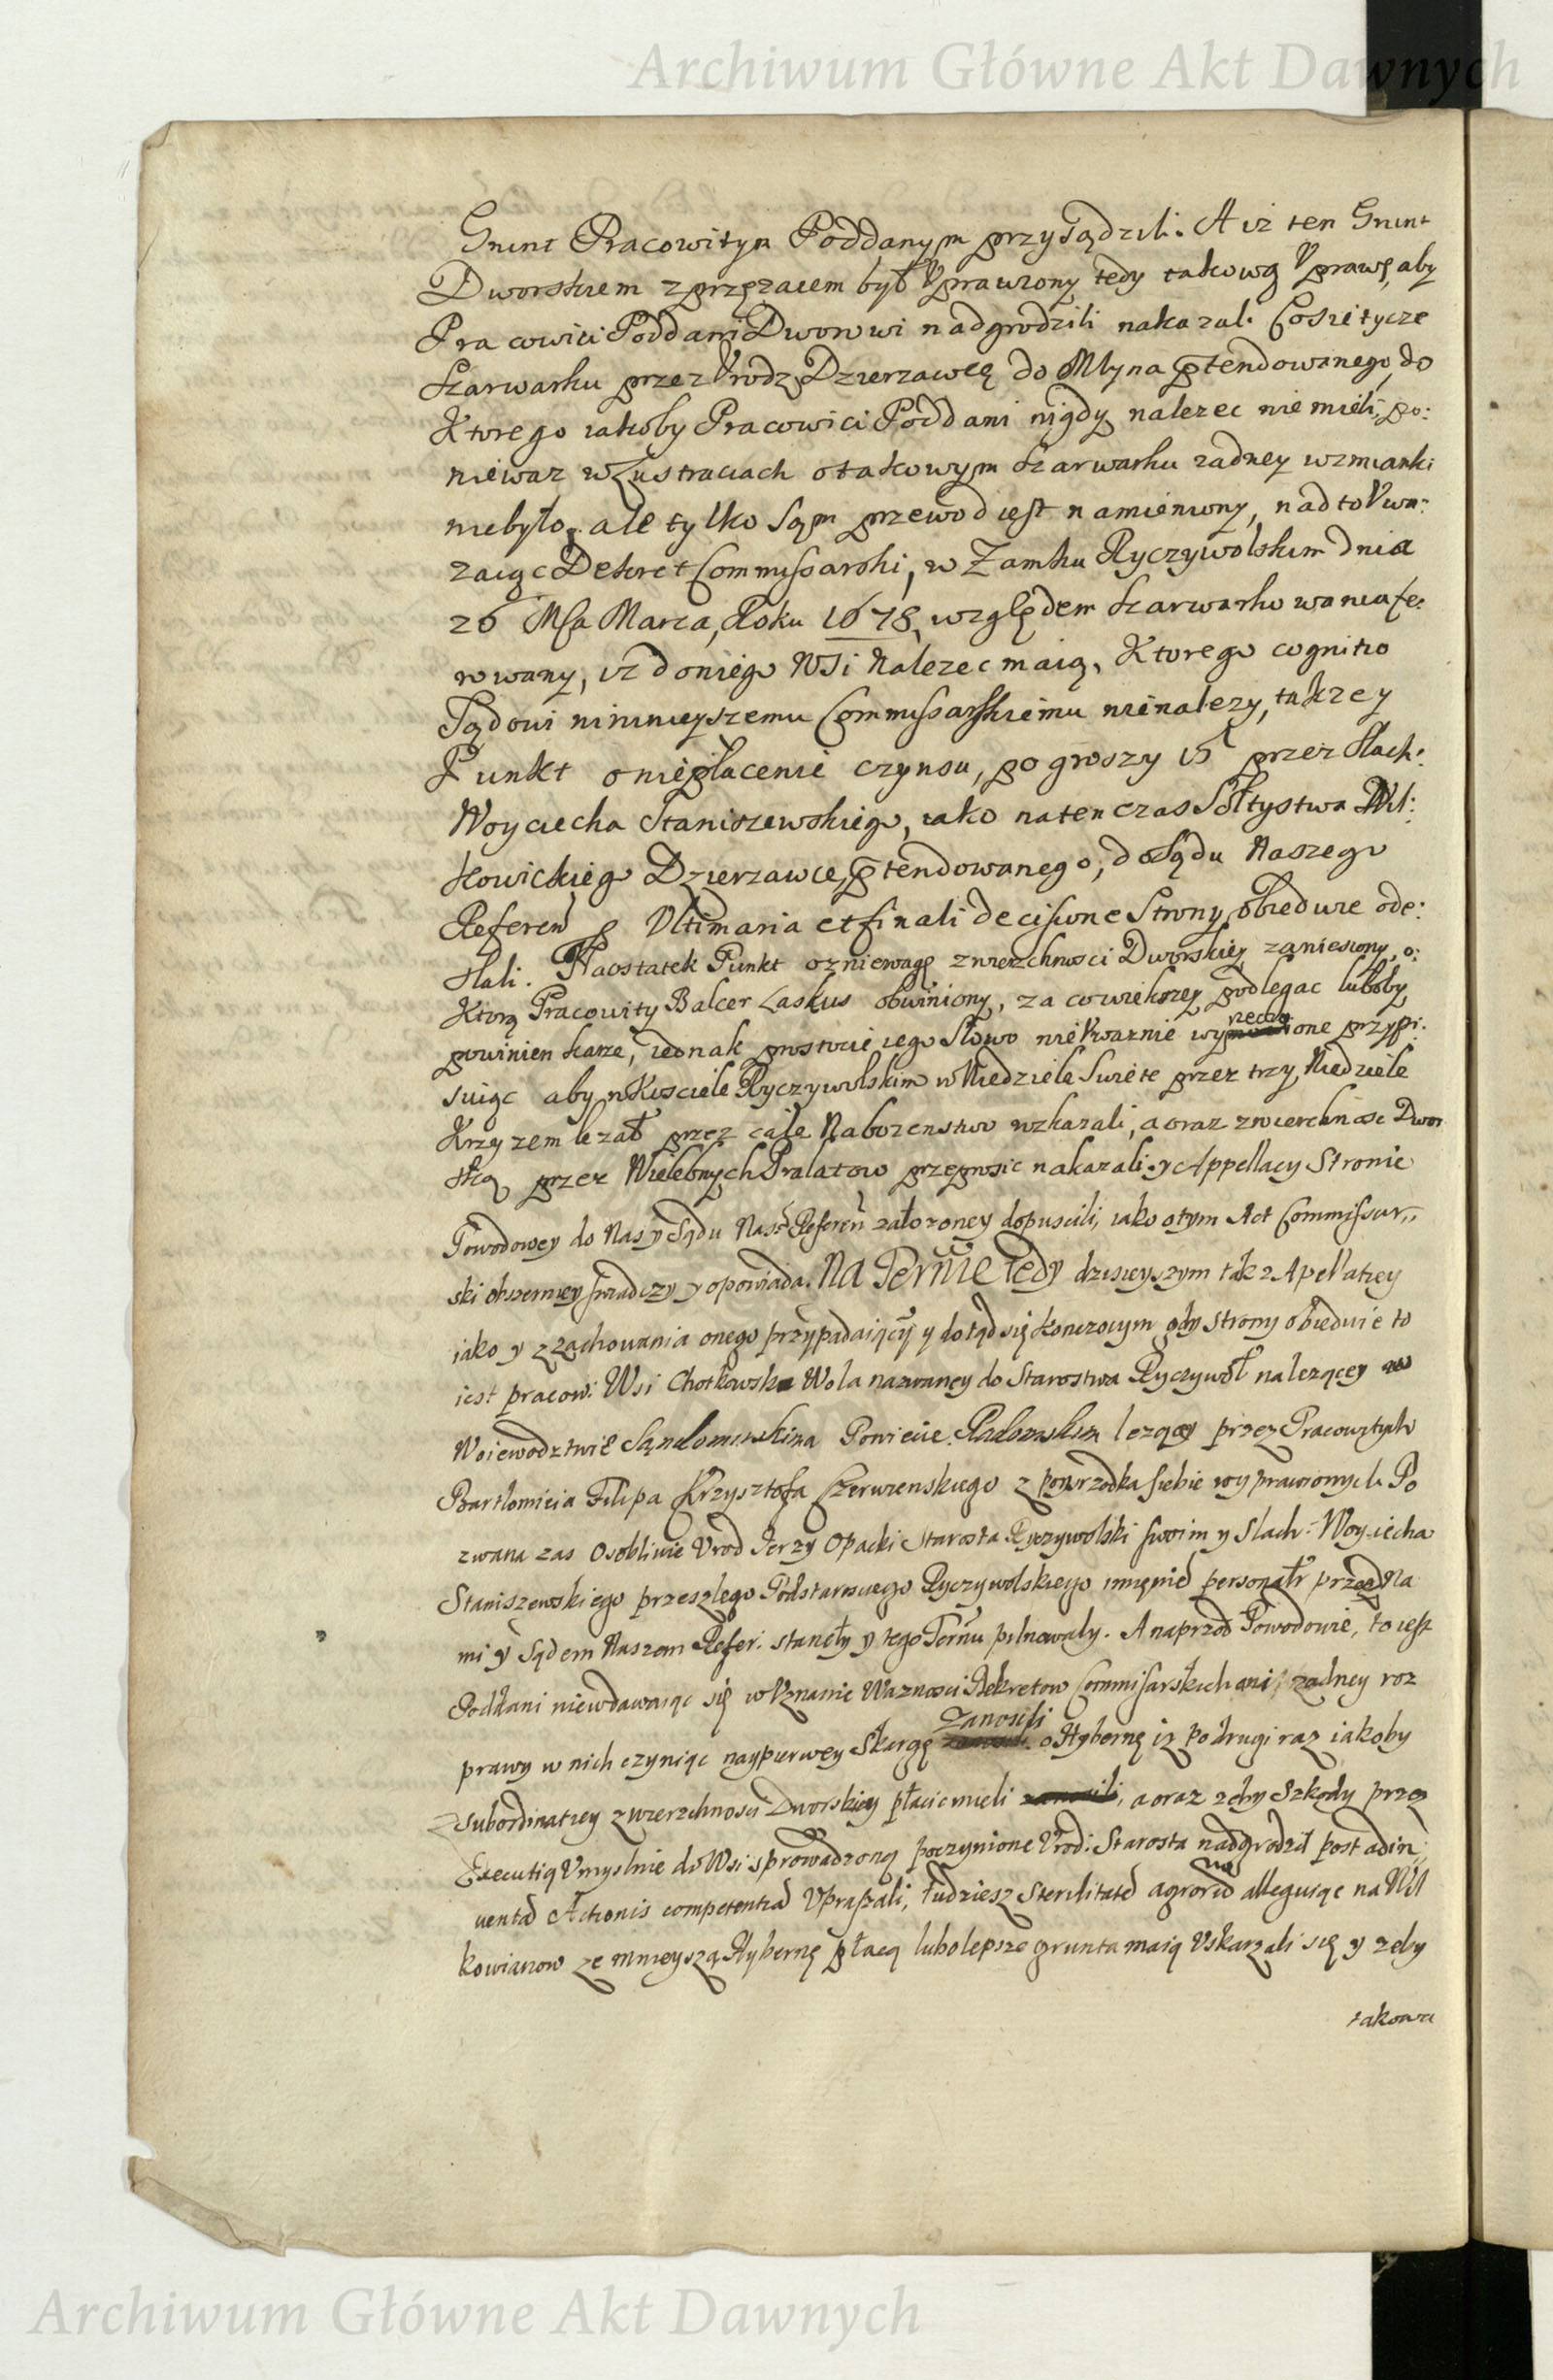 Archiwum Główne Akt Dawnych
Grunt Pracowitym Poddanym przysądzili. A iz ten Grunt
Dworskiem zprzęzaiem był Vprawiony tedy takową Vprawę, aby
Pracowici Poddani Dworowi nadgrodzili nakazali Co sie tycze
Szarwarku przez Vrodz Dzierzawcę do Młyna ptendowanego, do
Ktorego iakoby Pracowici Poddani nigdy nalezec nie mieli, po:
niewaz w Lustraciach otakowym szarwarku zadney wzmianki
niebyło, ale tylko Sąm przewod iest namieniony, nadto Vwa:
zaiąc Dekret Commissarski, w Zamku Ryczywolskim dnia
26 Msa Marca, Roku 1678, względem szarwarkowania fe:
rowany, iz doniego Wsi Nalezec maią, Ktorego cognitio
Sądowi ninieyszemu Commissarskiemu nienalezy, takze y
Punkt oniepłacenie czynsu, po groszy 15 przez Slach:
Woyciecha Staniszewskiego, iako natenczas Sołtystwa Wil:
kowickiego Dzierzawce, ptendowanego, do Sądu Naszego
Referen p Vltimaria et finali decisione Strony obiedwie ode:
słali. Naostatek Punkt ozniewagę zwierzchnosci Dworskiey zaniesiony, o:
Ktorą Pracowity Balcer Laskus obwiniony, za cowiekszey podlegac luboby
powinien karze, iednak prostocie iego Słowo nieVwaznie wyrzeczone przypi:
suiąc aby w Kosciele Ryczywolskim w Niedziele Swięte przez trzy Niedziele
Krzyzem lezał przez całe Nabozenstwo wzkazali, a oraz zwierchnosc Dwor
ską przez Wielebnych Prałatow przeprosic nakazali. y Appellacy Stronie
Powodowey do Nas y Sądu Nasº Referen załozoney dopuscili, iako otym Act Commissar,,
ski obszerniey swiadczy y opowiada. Na Termie tedy dzisieyszym tak z Apellatiey
iako y zzachowania onego przypadaiącym y dotąd się konczocym gdy strony obiedwie to
iest pracow: Wsi Chotkowska Wola nazwaney do Starostwa Ryczywoł nalezącey w
Woiewodztwie Sąndomirskim Powiecie Radomskim lezący przez Pracowitych
Bartłomieia Filipa Krzysztofa Czerwienskiego z posrzodka siebie wyprawionych Po
zwana zas Osobliwie Vrod Jerzy Opacki Starosta Ryczywolski swoim y Slach: Woyciecha
Staniszewskiego przeszlego Podstarosciego Ryczywolskiego imięnie personałr przed Na
mi y Sądem Naszem Refer: stanęły y tego Termu pilnowały. A naprzod Powodowie, to iest
Poddani niewdawaiąc się w Vznanie Waznosci Dekretow Commissarskich ani zadney roz
prawy w nich czyniąc naypierwey Skargę zanosili o Hybernę iz po drugi raz iakoby
subordinatiey zwierzchnosci Dworskiey płacic mieli, a oraz zeby Szkody przez
Executią Vmyslnie do Wsi sprowadzoną poczynione Vrod: Starosta nadgrodził post adin,,
uenta Actionis competentia Vpraszali, tudziesz Sterilitate agrorum alleguiąc na Wil
kowianow ze mnieyszą Hybernę płacą lubo lepsze grunta maią Vskarzali się y zeby
takowa
Archiwum Główne Akt Dawnych